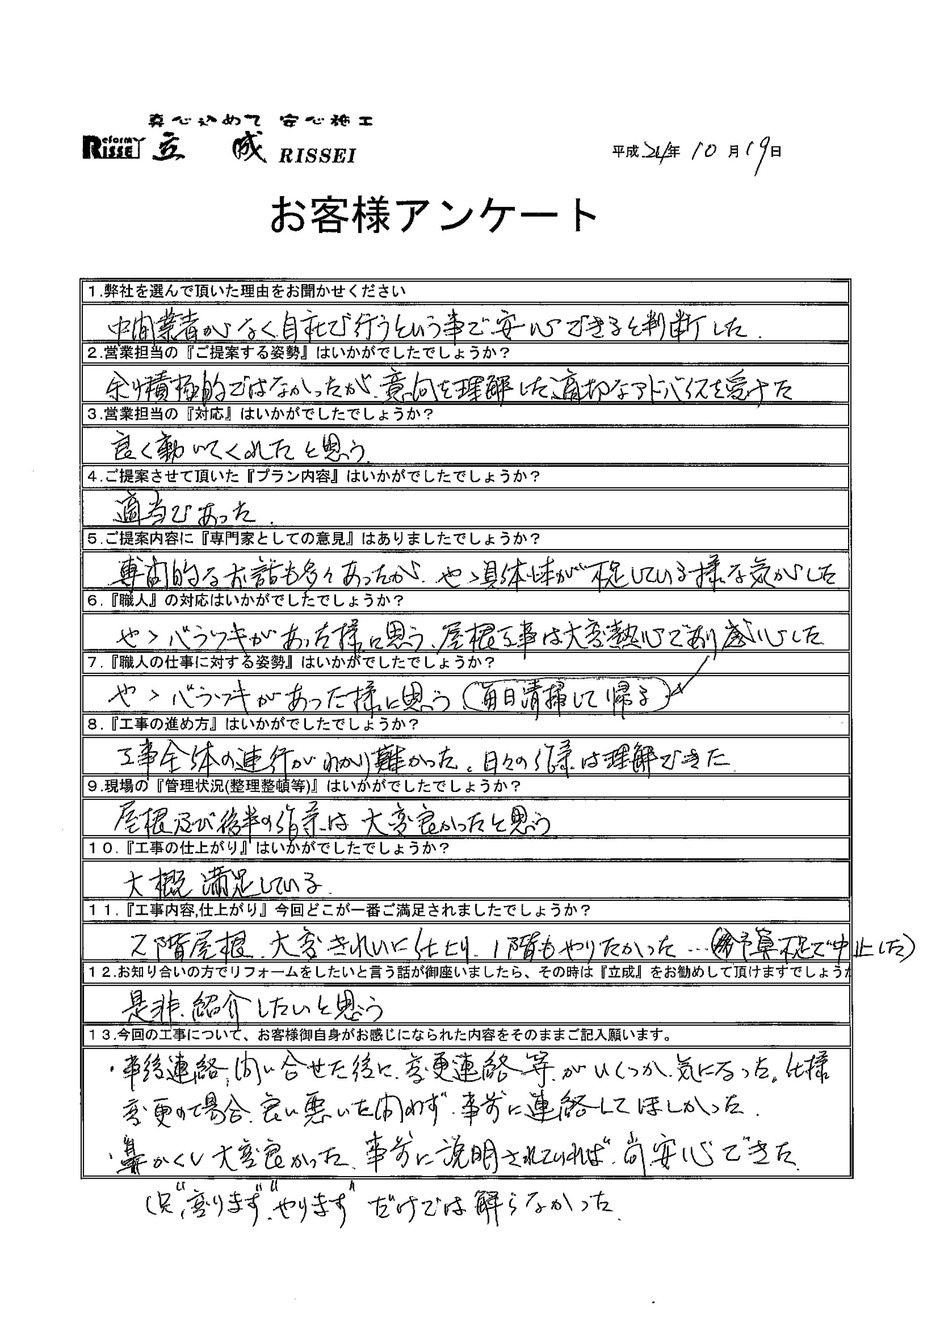 真心込めて 安心施工
Reform RISSEI 立成 RISSEI
平成 24年 10月19日
お客様アンケート
1.弊社を選んで頂いた理由をお聞かせください
中間業者がなく自社で行うという事で、安心できると判断した.
2.営業担当の『ご提案する姿勢』はいかがでしたでしょうか？
余り積極的ではなかったが、意向を理解した適切なアドバイスを受けた
3.営業担当の『対応』はいかがでしたでしょうか？
良く動いてくれたと思う.
4.ご提案させて頂いた『プラン内容』はいかがでしたでしょうか？
適当であった.
5.ご提案内容に『専門家としての意見』はありましたでしょうか？
専門的なお話も多々あったが、やゝ具体性が不足している様な気がした
6.『職人』の対応はいかがでしたでしょうか？
やゝバラツキがあった様に思う、屋根工事は大変熱心であり感心した
7.『職人の仕事に対する姿勢』はいかがでしたでしょうか？
やゝバラツキがあった様に思う(毎日清掃して帰る)
8.『工事の進め方』はいかがでしたでしょうか？
工事全体の進行がわかり難かった。日々の作業は理解できた.
9.現場の『管理状況(整理整頓等)』はいかがでしたでしょうか？
屋根及び後半の作業は大変良かったと思う.
10.『工事の仕上がり』はいかがでしたでしょうか？
大概満足している.
11.『工事内容,仕上がり』今回どこが一番ご満足されましたでしょうか？
2階屋根、大変きれいに仕上り、1階もやりたかった…(予算不足で中止した)
12.お知り合いの方でリフォームをしたいと言う話が御座いましたら、その時は『立成』をお勧めして頂けますでしょうか
是非、紹介したいと思う
13.今回の工事について、お客様御自身がお感じになられた内容をそのままご記入願います。
・事後連絡、問い合せた後に、変更連絡等がいくつか気になった。仕様
変更の場合、良い悪いを問わず、事前に連絡してほしかった.
・鼻かくし大変良かった、事前に説明されていれば、尚安心できた.
(只、"変ります""やります"だけでは解らなかった.